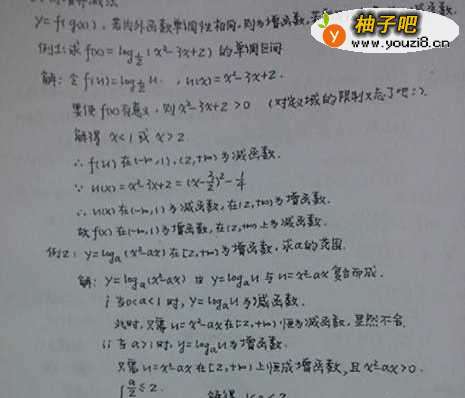 减法
y=f(g(x)), 若内外函数单调性相同,则为增函数,若
减函数.
柚子吧
www.youzi8.cn
例1:求f(x)=log_{1/2}(x²-3x+2)的单调区间
解:令f(u)=log_{1/2}u. , u(x)=x²-3x+2.
要使f(x)有意义,则x²-3x+2>0 (对定义域的限制又忘了吧:).
解得 x<1或x>2
∴f(u)在(-∞,1),(2,+∞)为减函数.
∵u(x)=x²-3x+2=(x-3/2)²-1/4
∴u(x)在(-∞,1)为减函数,在(2,+∞)为增函数.
故f(x)在(-∞,1)为增函数,在(2,+∞)上为减函数.
例2:y=log_a(x²-ax)在[2,+∞)为增函数,求a的范围.
解:y=log_a(x²-ax)由y=log_a u与u=x²-ax复合而成.
i 当0<a<1时,y=log_a u为减函数.
此时,只需u=x²-ax在[2,+∞)恒为减函数,显然不合.
ii 当a>1时,y=log_a u为增函数.
只需u=x²-ax在[2,+∞)上恒成增函数,且x²-ax>0.
{a/2≤2. 解得